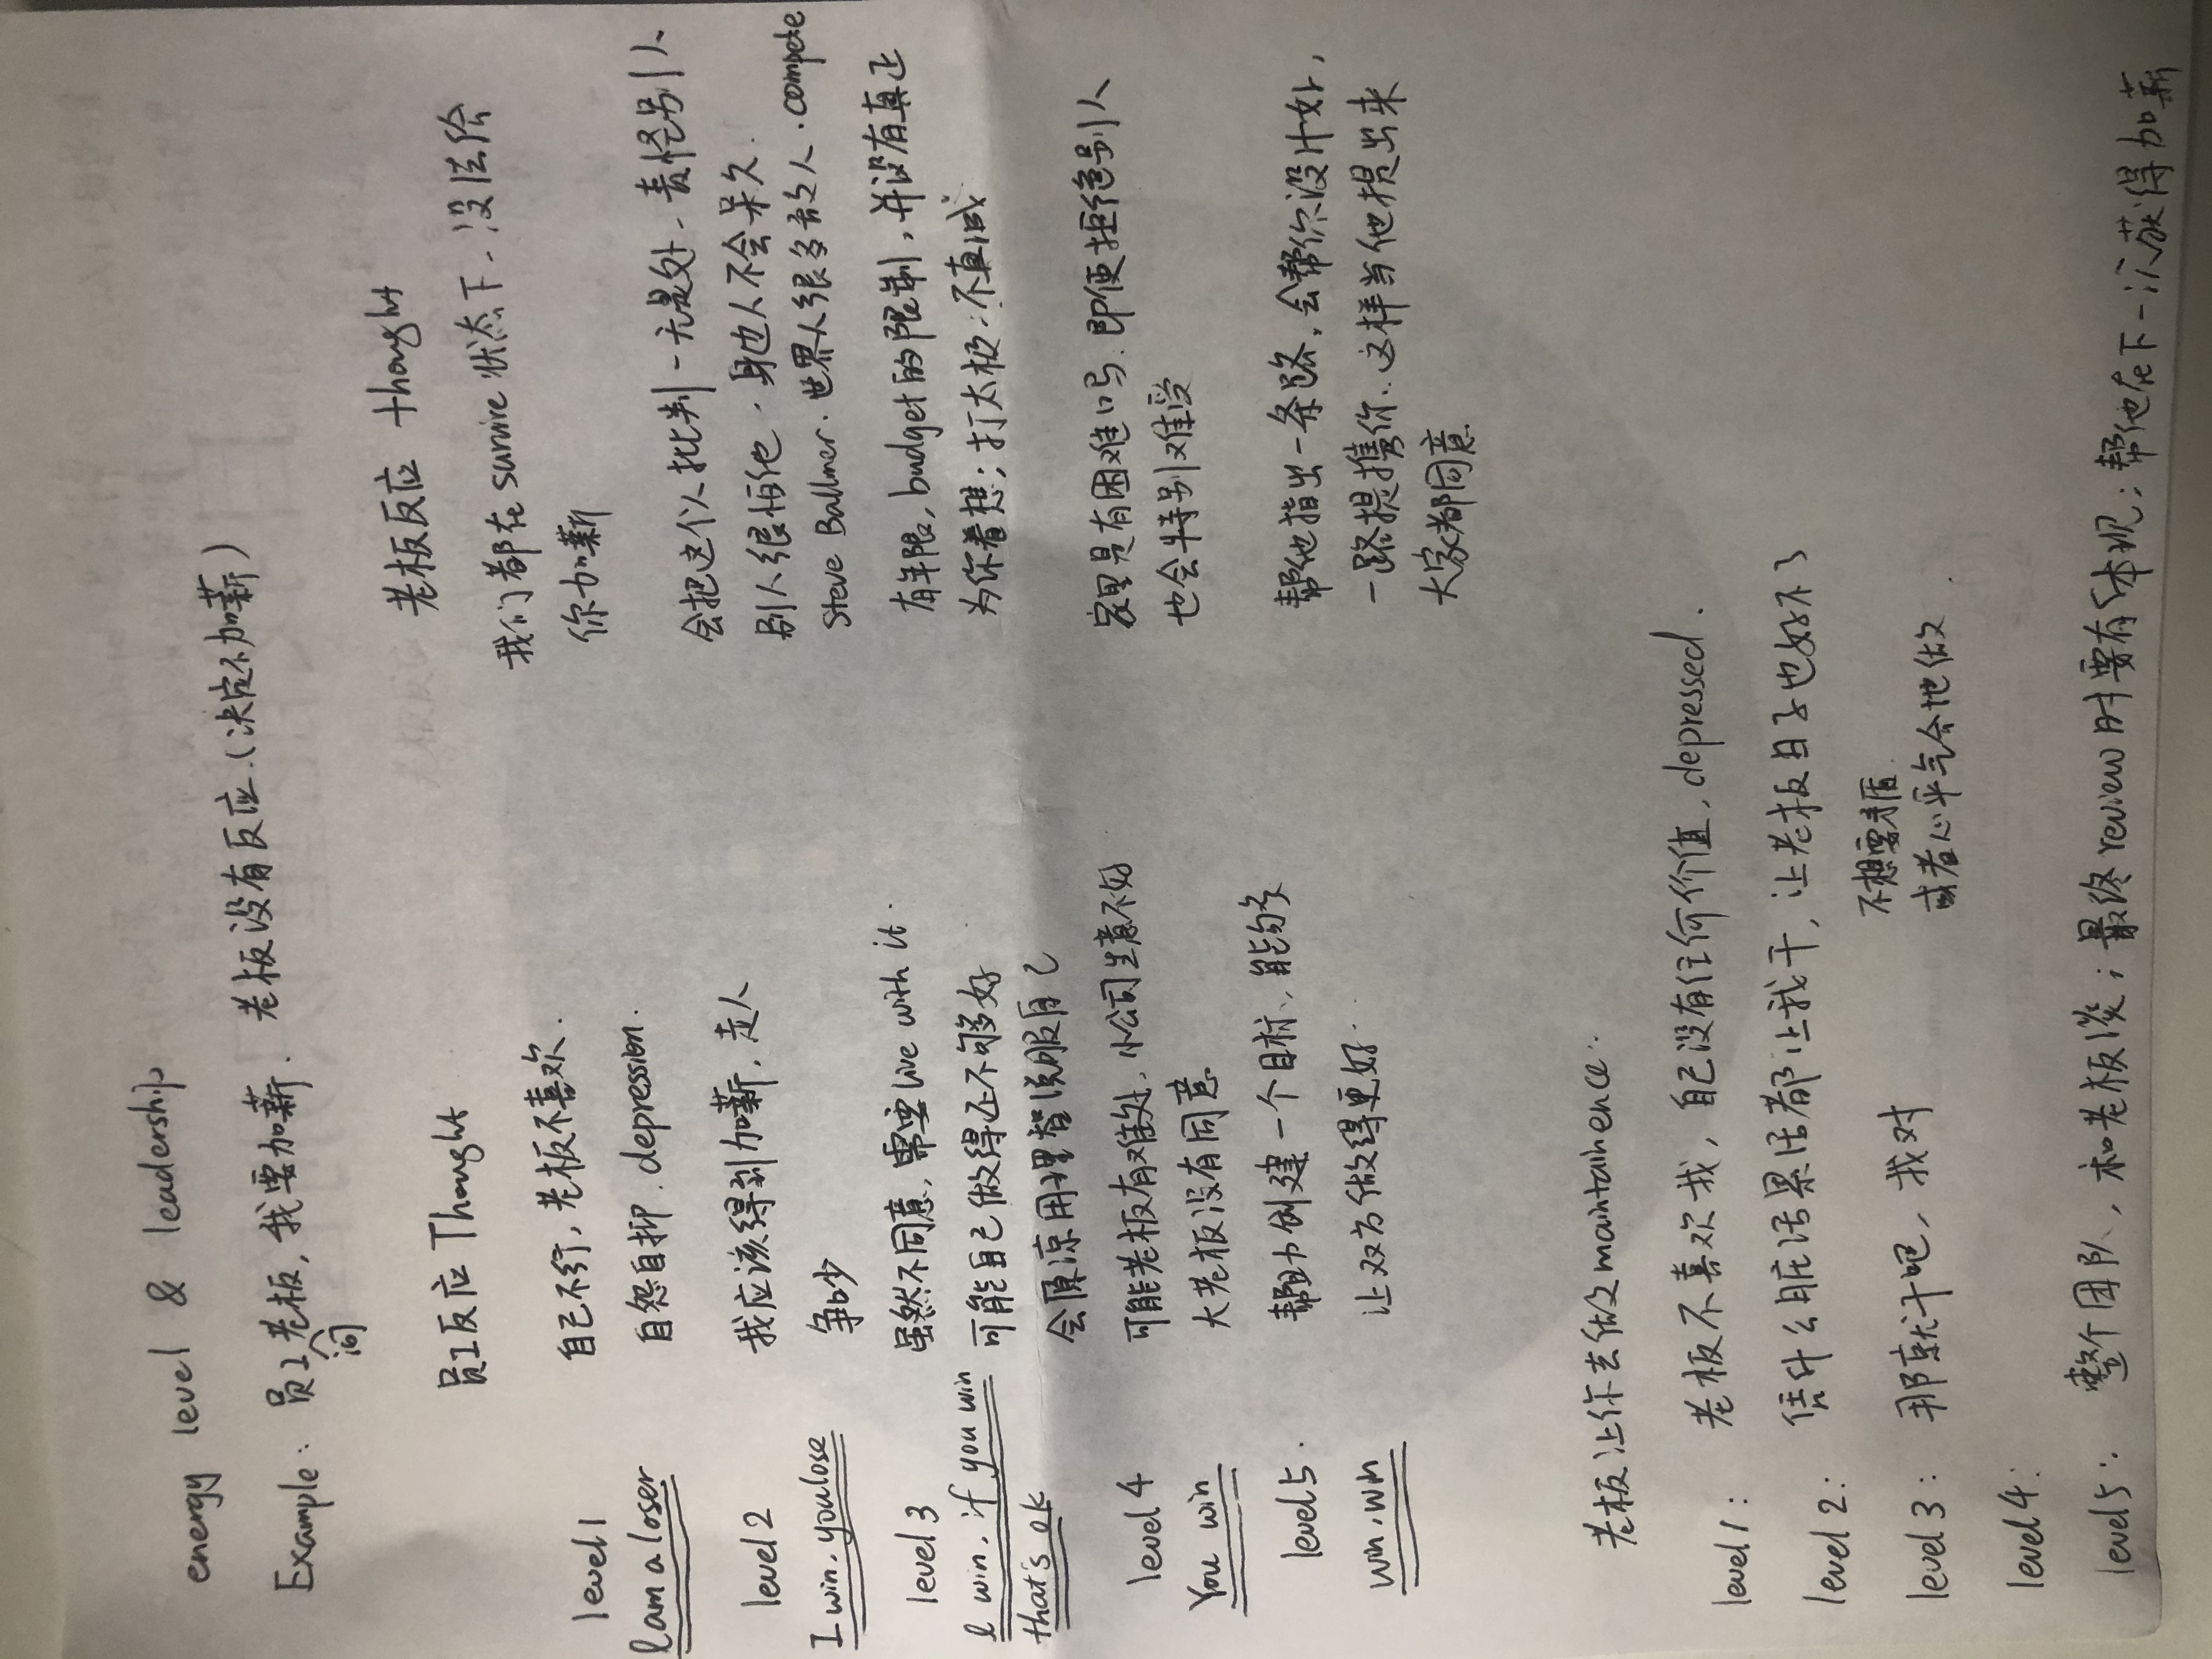 energy level & leadership
Example: 员工问老板, 我要加薪. 老板没有反应.(决定不加薪)
员工反应 Thought
老板反应 thought
level 1
I am a loser
自己不行, 老板不喜欢.
自怨自抑. depression.
我们都在 survive 状态下. 没法给
你加薪
level 2
I win. you lose
我应该得到加薪, 走人
争吵
会把这个人批判一无是处. 责怪别人
别人很怕他. 身边人不会呆久.
Steve Ballmer. 世界人很多敌人. compete
level 3
I win, if you win
that's ok
虽然不同意, 需要 live with it.
可能自己做得还不够好
会原凉用理智说服自己
有年限, budget 的限制, 并没有真正
为你着想; 打太极; 不真诚
level 4
You win
可能老板有难处, 小公司生意不好
大老板没有同意
家里是有困难吗. 即便拒绝别人
也会特别难受
level 5.
win, win
帮助创建一个目标, 能够
让双方做得更好.
帮他指出一条路, 会帮你设计好,
一路提携你. 这样当他提出来
大家都同意
老板让你去做 maintainence.
level 1: 老板不喜欢我, 自己没有任何价值, depressed.
level 2: 凭什么脏活累活都让我干, 让老板日子也好不了
level 3: 那就干吧, 我对
不想要矛盾.
或者心平气合地做.
level 4:
level 5: 整个团队, 和老板谈; 最终 review 时要有体现; 帮他在下一次获得加薪